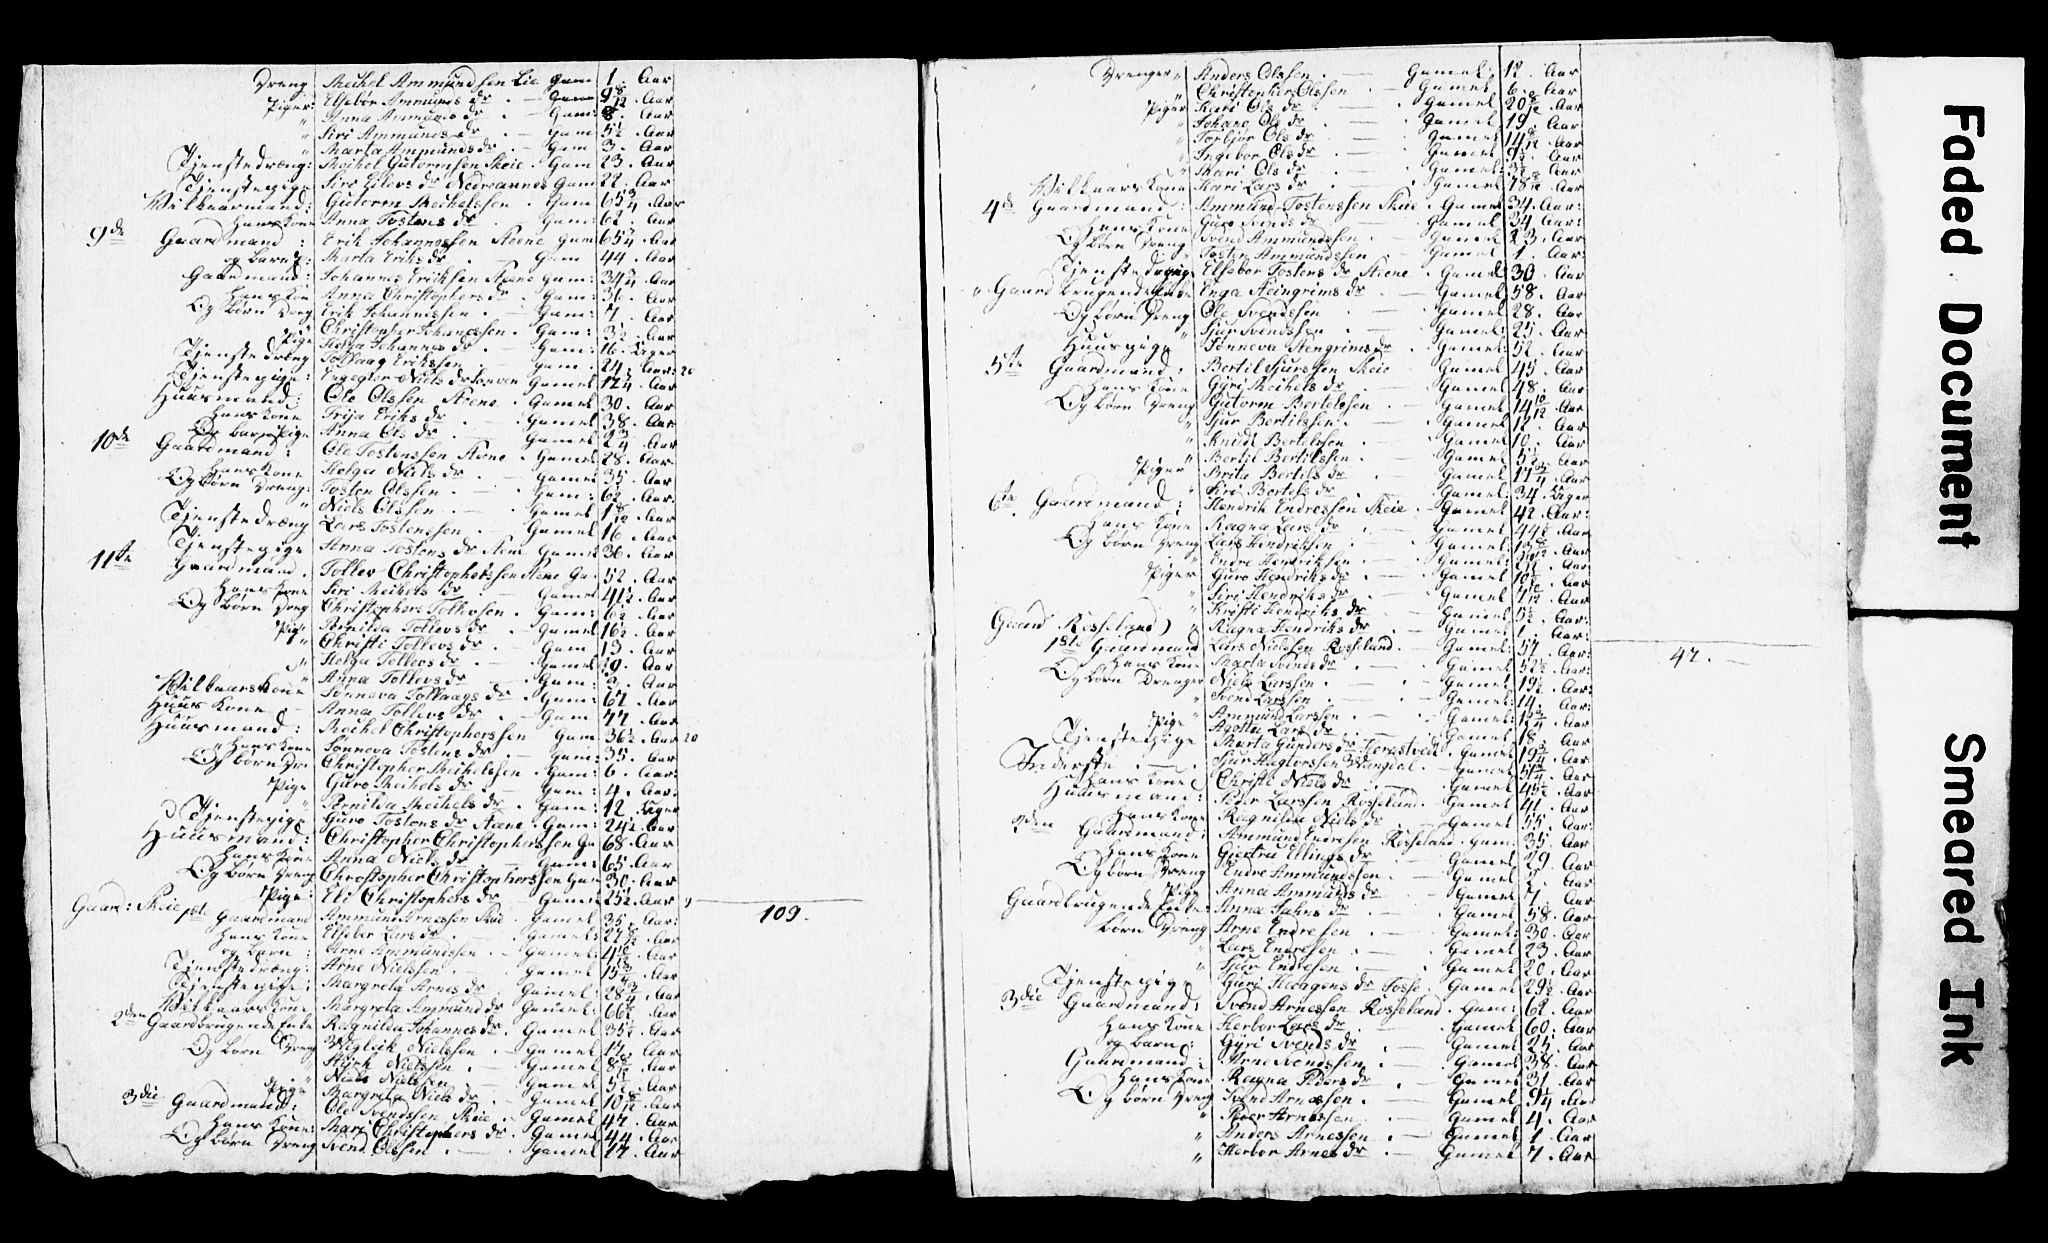 Dreng Meihel Ammundsen Lie Gam 1. Aar
Piger: Elsebør Ammunds dr. Gam 9 8/12 Aar
" Anna Ammunds dr. Gam: 8. Aar
" Siri Ammunds dr. Gam 5½. Aar
" Marta Ammunds dr. Gam 3. Aar
Tjenstedreng: Meihel Gutormsen Skeie Gam 23. Aar
Tjenstepige Siri Eilevs dr Gam 22. Aar
Vilkaarmand: Gutorm Meihelssen Gam 65 Aar
hans Kone Anna Tostens dr. Gam: 62. Aar
9de Gaardmand: Erik Johannessen Steene Gam 65 Aar
og barn: Marta Eriks dr. Gam 44. Aar
Gaardmand: Johannes Eriksen Steene Gam: 34 Aar
hans Kone Anna Christophers dr. Gam: 36. Aar
Og børn Dreng Erik Johannessen. Gam: 7. Aar
Christopher Johanessen. Gam: 3½. Aar
Pige Helga Johannes dr. Gam: 16. Uger
Tjenstedreng Tollaag Erikssen. Gam. 24. Aar:
Tjenstepige: Niels dr Gamel 12 Aar
Huusmand: Ole Olssen Steene. Gamel 30. Aar
hans Kone Eriks dr. Gamel 38. Aar
Og barn Pige Anna Ols dr. Gamel 2 Aar
10de Gaardmand: Ole Tostenssen Steene. Gamel 28. Aar
hans Kone Helga Niels dr. Gamel 35. Aar
Og børn Dreng: Tosten Olssen. Gam: 6½. Aar.
" Niels Olssen. Gamel 1 8/12. Aar
Tjenstedreng Lars Tostenssen. Gamel 16. Aar
Tjenstepige Anna Tostens dr Gamel 36. Aar
11te Gaardmand. Tollev Christophersen Steene Ga. 52. Aar
hans Kone Siri Meihels dr. Gamel 41½. Aar
Og børn Dreng Christopher Tollevsen. Gam: 6½. Aar
Pige Pernilda Tollevs dr. Gamel 16½. Aar
" Christi Tollevs dr. Gam 13. Aar
" Helga Tollevs dr. Gamel 10. Aar
" Anna Tollevs dr. Gam: Aar
Vilkaars Kone Sønneva Tollaags dr. Gam: 67. Aar
Huus Kone Anna Tollevs dr. Gam 77. Aar
Huusmand: Meihel Christopherssen Gam 36½. Aar
hans Kone Sønneva Tostens dr. Gam: 35. Aar
Og børn Dre Christopher Meihelssen. Gam: 6. Aar:
Pige Guro Meihels dr. Gam: 4. Aar:
" Pernilda Meihels dr. Gam: 12. Uger
Tjenstepige Guro Tostens dr Steene. Gam: 24½ Aar
Huusmand: Christopher Christopherssen Ga 68. Aar
hans Kone Anna Niels dr. Gam: 65. Aar
Og børn Dreng Christopher Christopherssen Gam 30. Aar
Pige: Eli Christophers dr. Gamel 25½. Aar 109.
Gaard: Skeie 1ste Gaardmand Ammund Arnessen Skeie. Gamel 35. Aar:
hans Kone Elseber Lars dr. Gamel: 27 Aar
og barn: Arne Ammundssen. Gamel: 4 Aar
Tjenstedreng: Arne Nielssen. Gamel 15 Aar
Tjenstepige: Margreta Arnes dr. Gamel: 28 Aar
Vilkaars Kone Margreta Ammunds dr Gamel: 66 Aar
2den Gaardbrugende Enke Ragnilda Johannes dr. Gamel 35½. Aar
Og børn Dreng Vigleik Nielssen. Gamel 17. Aar
" Nielssen. Gamel 8 8/12. Aar
" Niels Nielssen. Gamel 5½. Aar
Pige Margreta Niels dr. Gamel 10 8/12 Aar
3die Gaardmand: Ole Svendssen Skeie. Gamel 47. Aar
hans Kone: Mari Christophers dr. Gamel 44. Aar
Og børn Dreng Svend Olssen. Gamel 17. Aar
Drenger " Anders Olssen. Gamel: 12. Aar
Christopher Olssen. Gamel. 6. Aar
Piger Kari Ols dr. Gamel 20 8/12 Aar
Johane Ols dr. Gamel 19. Aar
Torbjør Ols dr. Gamel 14 Aar
Ingebor Ols dr. Gamel 9½. Aar
Mari Ols dr. Gamel 3½. Aar
Vilkaars Kone Kari Lars dr. Gamel 78 Aar
4de Gaardmand: Ammund Tostenssen Skeie. Gamel 34. Aar:
hans Kone Guro Svends dr. Gamel 34. Aar:
Og børn Dreng Svend Ammundssen. Gamel 2 Aar
" Tosten Ammundssen. Gamel 1. Aar:
Tjenstepige Elsebor Tostens dr Steene. Gamel: 30. Aar
" Gaardbrugende Enke Enga Steingrims dr. Gamel 58. Aar
Og børn Dreng Ole Svendssen. Gamel 28. Aar
" Sjur Svendssen. Gamel: 25. Aar
Huuspige Sønneva Stengrims dr. Gamel: 52. Aar
5te Gaardmand: Bertil Sjurssen Skeie. Gamel 45. Aar
hans Kone Gyri Meihels dr. Gamel 48. Aar
Og børn Dreng Gutorm Bertelssen. Gamel 14 10/12 Aar
" Sjur Bertilssen. Gamel 12. Aar
" Knudt Bertelssen. Gamel 10. Aar
" Bertil Bertilssen. Gamel 5½. Aar
Piger " Brita Bertils dr. Gamel 11 Aar
" Siri Bertels dr. Gamel: 34. Uger
6te Gaardmand: Hendrik Endressen Skeie. Gamel 42. Aar:
hans Kone Ragna Lars dr. Gamel 44½. Aar
Og børn Dreng Lars Hendrikssen. Gamel 15 Aar
" Endre Hendriksen. Gamel: Aar
Piger Guro Hendriks dr. Gamel 10½. Aar
" Siri Hendriks dr. Gamel Aar
" Kristi Hendriks dr. Gamel 5½. Aar
" Ragna Hendriks dr. Gamel 1. Aar: 47.
Gaard Rosseland) 1ste Gaardmand Lars Nielssen Rosseland. Gamel: 57. Aar:
hans Kone Marta Svends dr. Gamel 52½. Aar:
Og børn Drenger Niels Larssen. Gamel 19½. Aar:
" Svend Larssen. Gamel 14. Aar
" Ammund Larssen. Gamel: 13 Aar
Pige " Agotta Lars dr. Gamel 18. Aar
Tjenstepige Marta Gunders dr Herastvedt. Gamel 19 Aar
Inderste. Sjur Vangdal. Gamel 57 Aar
hans Kone Christi Niels dr. Gamel 45½. Aar
Huusmand: Peder Larssen Rosseland. Gamel 41. Aar
hans Kone Ragnilda Niels dr. Gamel 55. Aar:
2den Gaardmand: Ammund Endresen Rosseland. Gam: 35. Aar
hans Kone Giertru Ellings dr. Gamel 29. Aar
Og børn Dreng Endre Ammundssen. Gamel Aar
Pige Anna Ammunds dr. Gamel 7. Aar
Gaardbrugende Enke: Anna Jahns dr. Gamel 58. Aar
børn Dreng Arne Endresen. Gamel: 30. Aar
" Lars Endresen. Gamel 23. Aar
" Sjur Endresen. Gamel 20. Aar
Tjenstepige Guri Haagens dr Tosse. Gamel 29½. Aar
3die Gaardmand: Svend Arnessen Rosseland. Gam: 62. Aar
hans Kone Herbor Lars dr. Gamel 60. Aar
og barn: Gyri Svends dr. Gamel 25. Aar
Gaardmand: Arne Svendssen. Gamel 38. Aar
hans Kone Ragna Peders dr. Gamel 31. Aar
Og børn Dreng Svend Arnessen. Gamel 9¼. Aar
" Peder Arnessen. Gamel 4. Aar
" Anders Arnessen. Gamel 1. Aar
" Herbor Arnes dr. Gamel 7. Aar
Faded Document
Smeared Ink